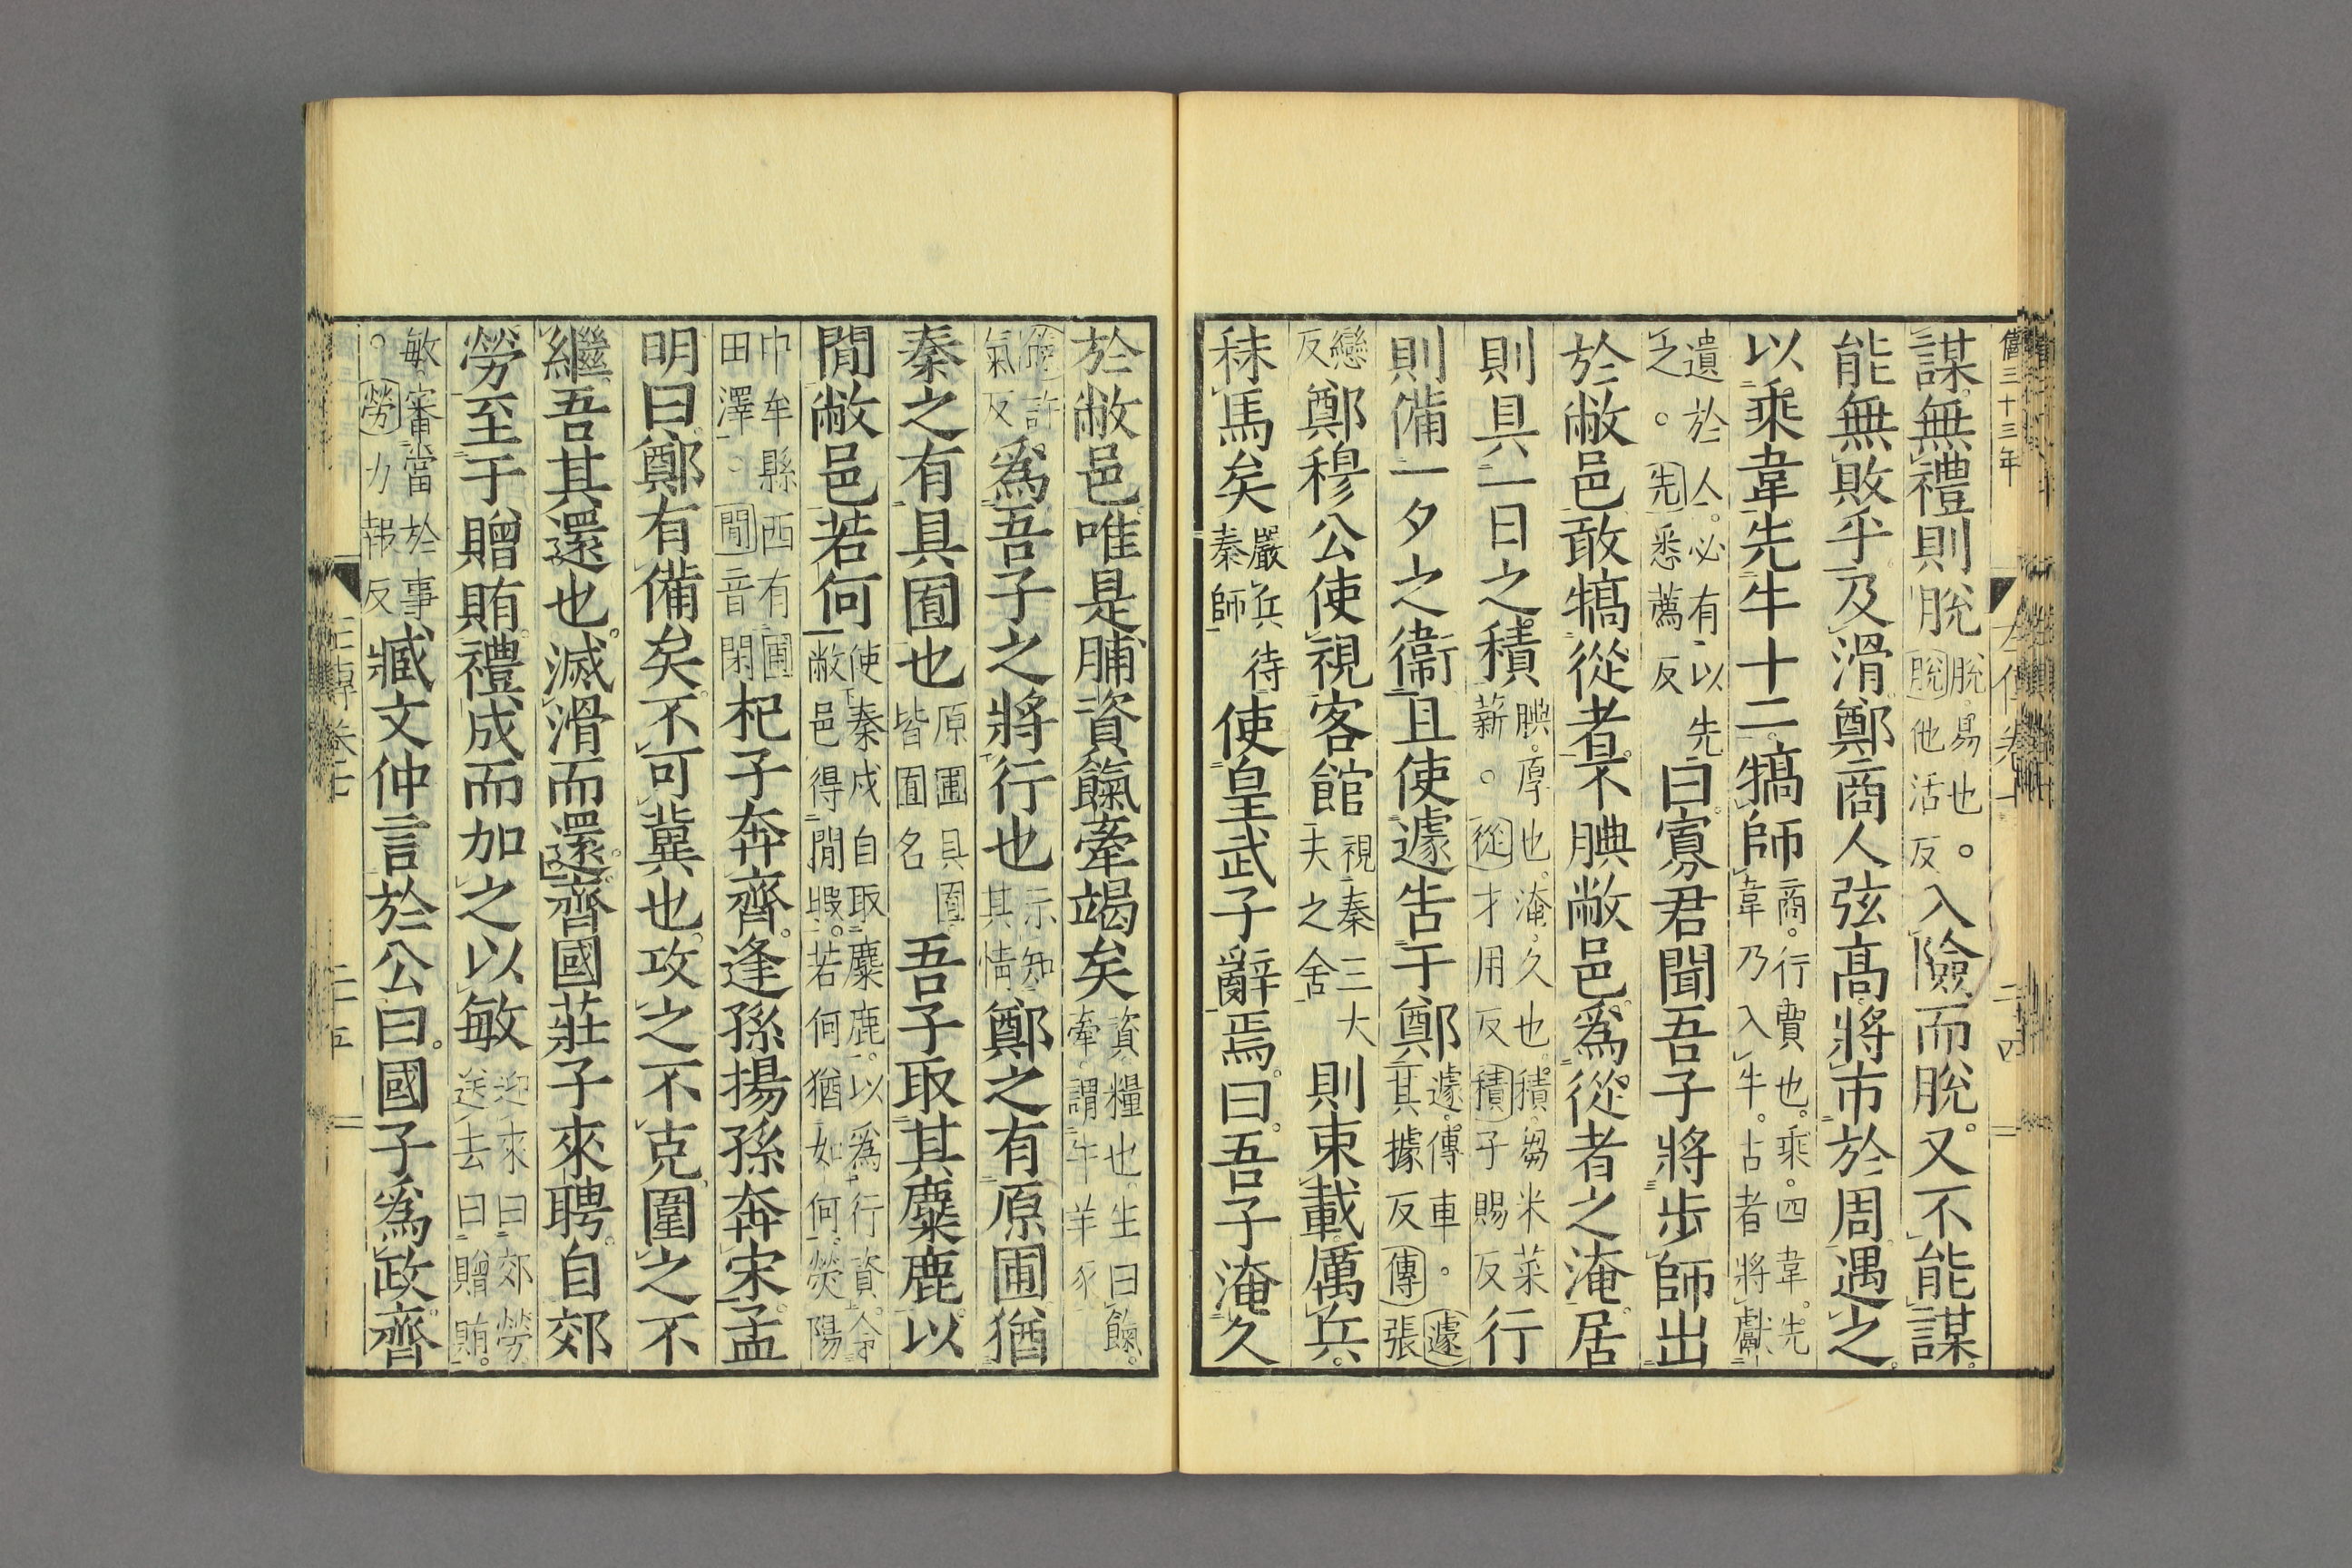 僖三十三年
謀。無禮則脫脫易也。脫他活反入險而脫。又不能謀。
能無敗乎。及滑鄭商人弦高將市於周遇之。
以乘韋先牛十二。犒師商。行賈也。乘。四韋。先韋乃入牛。古者將獻
遺於人。必有以先之。先悉薦反曰。寡君聞吾子將步師出
於敝邑敢犒從者。不腆敝邑。爲從者之淹。居
則具一日之積腆。厚也。淹。久也。積。芻米菜薪。從才用反積子賜反行
則備一夕之衞且使遽告于鄭遽。傳車。遽其據反傳張
戀反鄭穆公使視客館視秦三大夫之舍則束載厲兵。
秣馬矣嚴兵待秦師使皇武子辭焉。曰。吾子淹久
於敝邑唯是脯資餼牽竭矣資糧也。生曰餼。牽。謂牛羊豕
餼許氣反爲吾子之將行也示知其情鄭之有原圃猶
秦之有具囿也原圃具囿皆囿名吾子取其麋鹿。以
閒敝邑若何使秦戍自取麋鹿。以爲行資。令敝邑得閒暇。若何猶如何。熒陽
中牟縣西有圃田澤。閒音閑杞子奔齊。逢孫揚孫奔宋。孟
明曰。鄭有備矣。不可冀也。攻之不克圍之不
繼吾其還也。滅滑而還。齊國莊子來聘。自郊
勞至于贈賄禮成而加之以敏迎來曰郊勞送去曰贈賄。
敏。審當於事。勞力報反臧文仲言於公曰。國子爲政齊